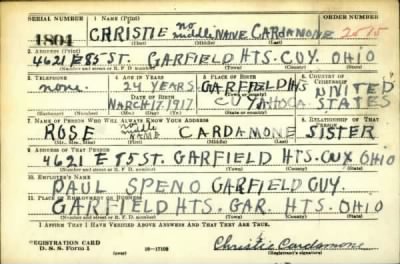 SERIAL NUMBER 1. NAME (Print) ORDER NUMBER
1804 CHRISTIE no middle NAME CARDAMONE 2515
(First) (Middle) (Last)
2. ADDRESS (Print)
4621 E 85 ST. GARFIELD HTS. CUY. OHIO
(Number and street or R. F. D. number) (Town) (County) (State)
3. TELEPHONE 4. AGE IN YEARS 5. PLACE OF BIRTH 6. COUNTRY OF CITIZENSHIP
none. 24 YEARS GARFIELD HTS UNITED
DATE OF BIRTH
MARCH 17, 1917. CUYAHOGA STATES
7. NAME OF PERSON WHO WILL ALWAYS KNOW YOUR ADDRESS 8. RELATIONSHIP OF THAT PERSON
ROSE no middle NAME CARDAMONE SISTER
(Mr., Mrs., Miss) (First) (Middle) (Last)
9. ADDRESS OF THAT PERSON
4621 E 85 ST. GARFIELD HTS. CUY OHIO
(Number and street or R. F. D. number) (Town) (County) (State)
10. EMPLOYER'S NAME
PAUL SPENO GARFIELD CUY.
11. PLACE OF EMPLOYMENT OR BUSINESS
GARFIELD HTS. GAR. HTS. OHIO
(Number and street or R. F. D. number) (Town) (County) (State)
I AFFIRM THAT I HAVE VERIFIED ABOVE ANSWERS AND THAT THEY ARE TRUE.
REGISTRATION CARD
D. S. S. Form 1 (over) 16-17105 Christie Cardamone
(Registrant's signature)